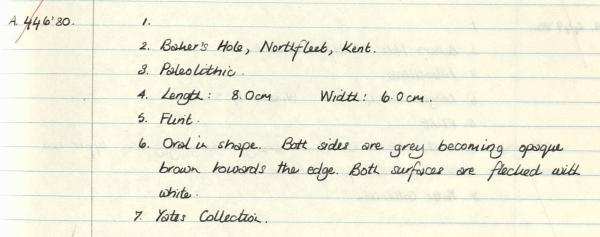 A. 446'80. 1.
2. Baker's Hole, Northfleet, Kent.
3. Paleolithic.
4. Length: 8.0cm Width: 6.0cm.
5. Flint.
6. Oval in shape. Both sides are grey becoming opaque
brown towards the edge. Both surfaces are flecked with
white.
7. Yates Collection.